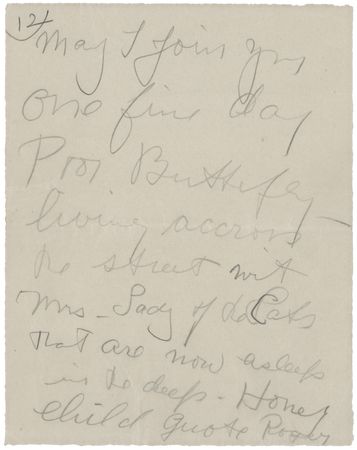 12/
May I Join you
one fine day
Poor Butterfly
living accross
the street wit
Mrs - Lady of the Cats
that are now asleep
in the deep - Honey
child quote Roger